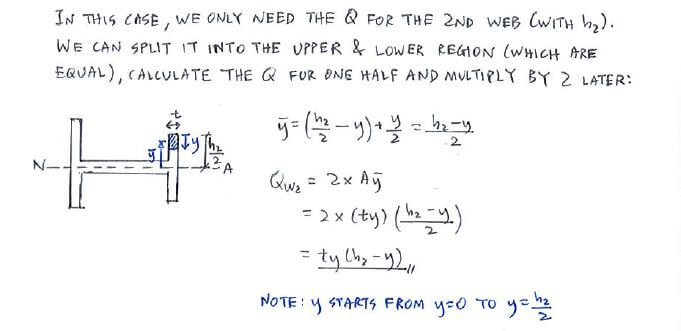 IN THIS CASE, WE ONLY NEED THE Q FOR THE 2ND WEB (WITH h₂).
WE CAN SPLIT IT INTO THE UPPER & LOWER REGION (WHICH ARE
EQUAL), CALCULATE THE Q FOR ONE HALF AND MULTIPLY BY 2 LATER:
t
ȳ = (h₂/2 - y) + y/2 = h₂-y/2
y
h₂/2
ȳ
N
A
Q_W₂ = 2 x Aȳ
= 2 x (ty) (h₂-y/2)
= ty (h₂-y) //
NOTE: y STARTS FROM y=0 TO y=h₂/2